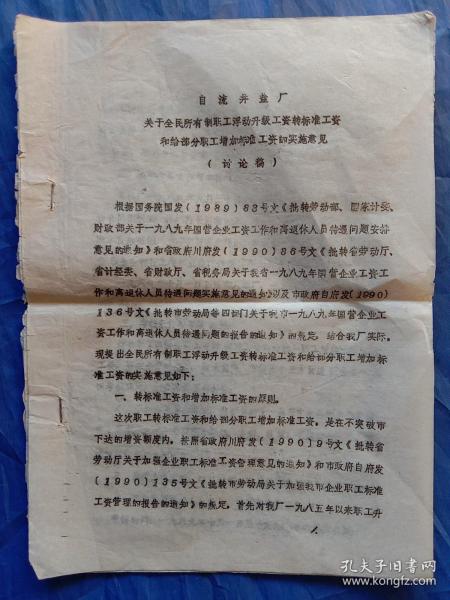 自流井盐厂
关于全民所有制职工浮动升级工资转标准工资
和给部分职工增加标准工资的实施意见
(讨论稿)
根据国务院国发(1989)83号文《批转劳动部、国家计委、
财政部关于一九八九年国营企业工资工作和离退休人员待遇问题安排
意见的通知》和省政府川府发(1990)86号文《批转省劳动厅、
省计经委、省财政厅、省税务局关于我省一九八九年国营企业工资工
作和离退休人员待遇问题实施意见的通知》以及市政府自府发(1990)
136号文《批转市劳动局等四部门关于我市一九八九年国营企业工
资工作和离退休人员待遇问题的报告的通知》的规定,结合我厂实际,
现提出全民所有制职工浮动升级工资转标准工资和给部分职工增加标
准工资的实施意见如下:
一、转标准工资和增加标准工资的原则。
这次职工转标准工资和给部分职工增加标准工资,是在不突破市
下达的增资额度内,按照省政府川府发(1990)9号文《批转省
劳动厅关于加强企业职工标准工资管理意见的通知》和市政府自府发
(1990)135号文《批转市劳动局关于加强我市企业职工标准
工资管理的报告的通知》的规定,首先对我厂一九八五年以来职工升
1.
孔夫子旧书网
www.kongfz.com